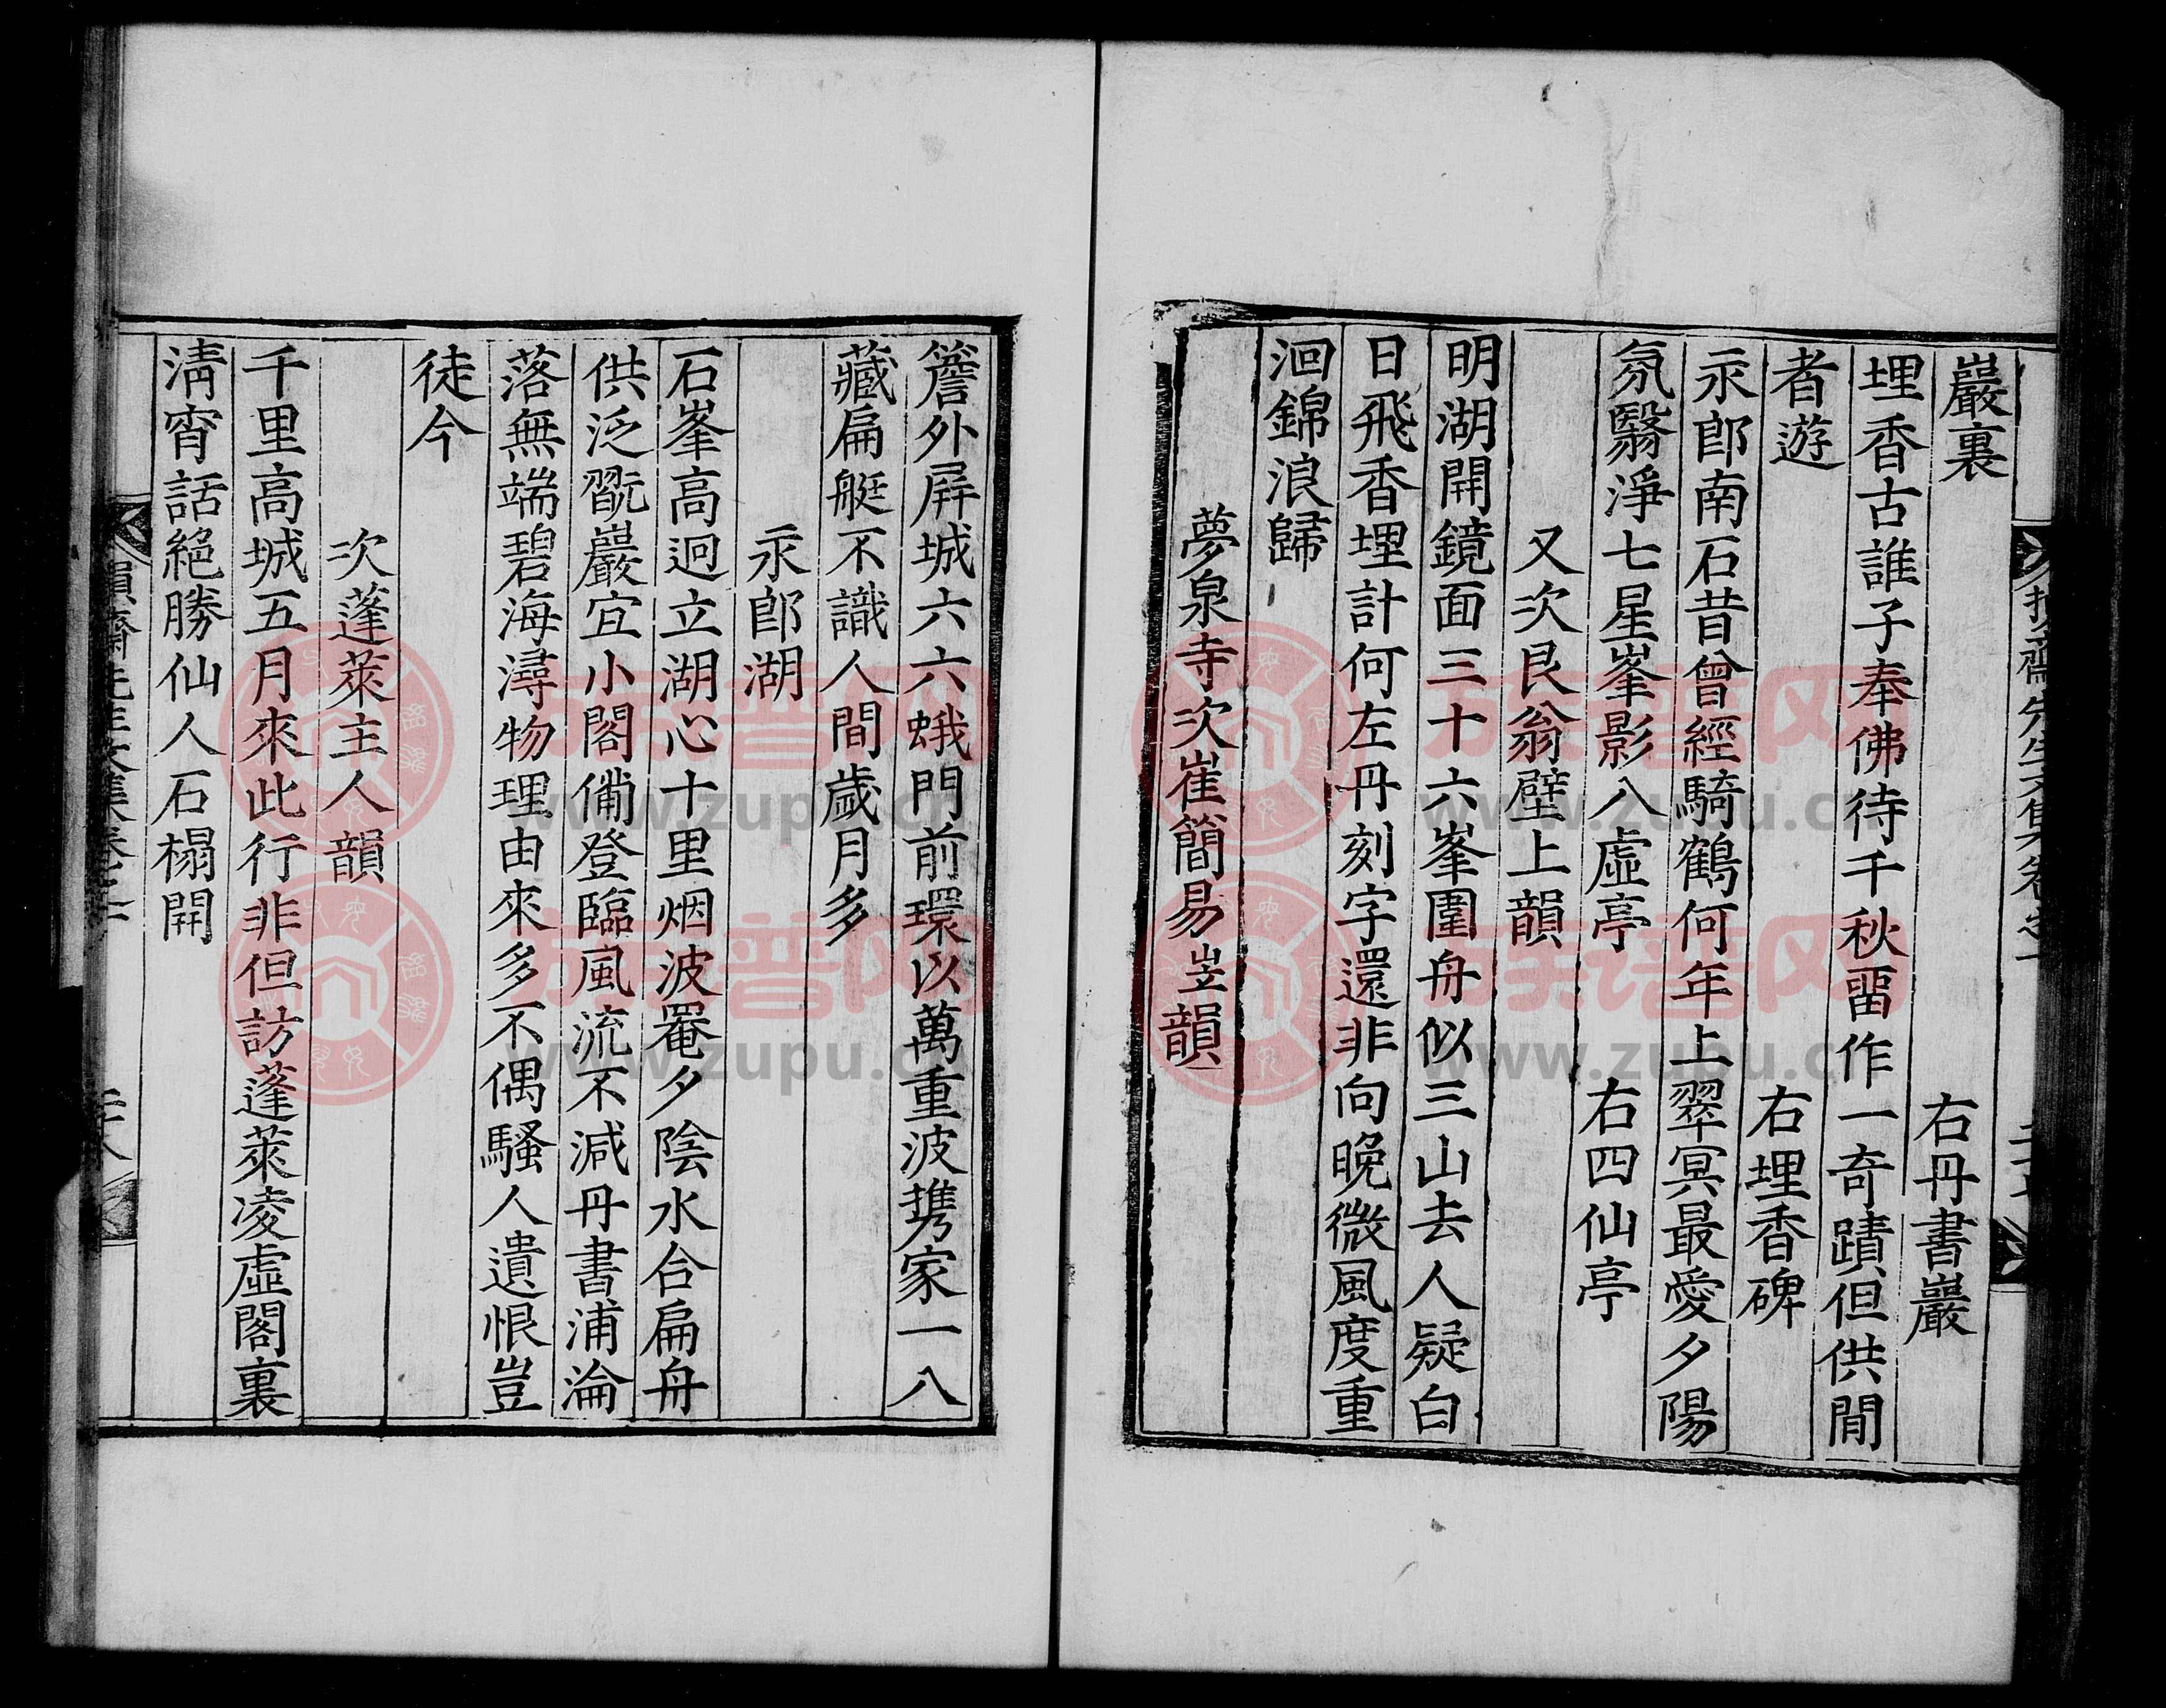 巖裏　右丹書巖
埋香古誰子奉佛待千秋畱作一奇蹟但供閒
者遊　右埋香碑
永郎南石昔曾經騎鶴何年上翠冥最愛夕陽
氛翳淨七星峯影八虛亭　右四仙亭
又次艮翁壁上韻
明湖開鏡面三十六峯圍舟似三山去人疑白
日飛香埋計何左丹刻字還非向晚微風度重
洄錦浪歸
夢泉寺次崔簡易岦韻
簷外屛城六六蛾門前環以萬重波携家一八
藏扁艇不識人間歲月多
永郎湖
石峯高迥立湖心十里烟波罨夕陰水合扁舟
供泛翫巖宜小閣備登臨風流不減丹書浦淪
落無端碧海潯物理由來多不偶騷人遺恨豈
徒今
次蓬萊主人韻
千里高城五月來此行非但訪蓬萊凌虛閣裏
淸宵話絕勝仙人石榻開
族譜网
www.zupu.cn
族譜网
www.zupu.cn
族譜网
www.zupu.cn
族譜网
www.zupu.cn